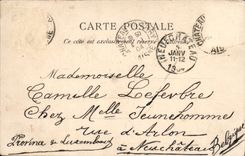 CARTE POSTALE
Ce côté est exclusivement réservé à l'adresse
NEUFCHATEAU
JANV
11-12
Mademoiselle
Camille Lefevbre
Chez Melle Jeunehomme
rue d'Arlon
à Neufchâteau
Province de Luxembourg
Belgique